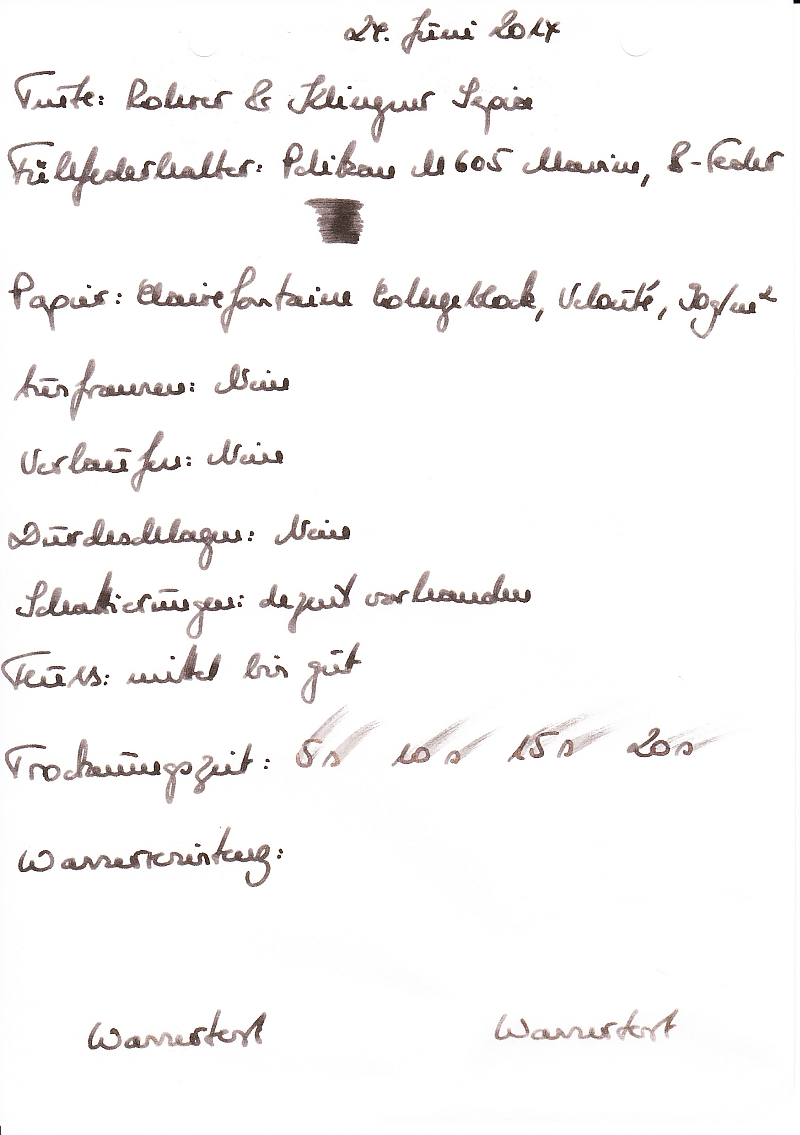 24. Juni 2017
Tinte: Rohrer & Klingner Sepia
Füllfederhalter: Pelikan M605 Marine, B-Feder
Papier: Clairefontaine Collegeblock, Velouté, 90g/m²
Ausfransen: Nein
Verlaufen: Nein
Durchschlagen: Nein
Schattierungen: dezent vorhanden
Fluss: mittel bis gut
Trocknungszeit: 5s 10s 15s 20s
Wasserresistenz:
Wassertest Wassertest